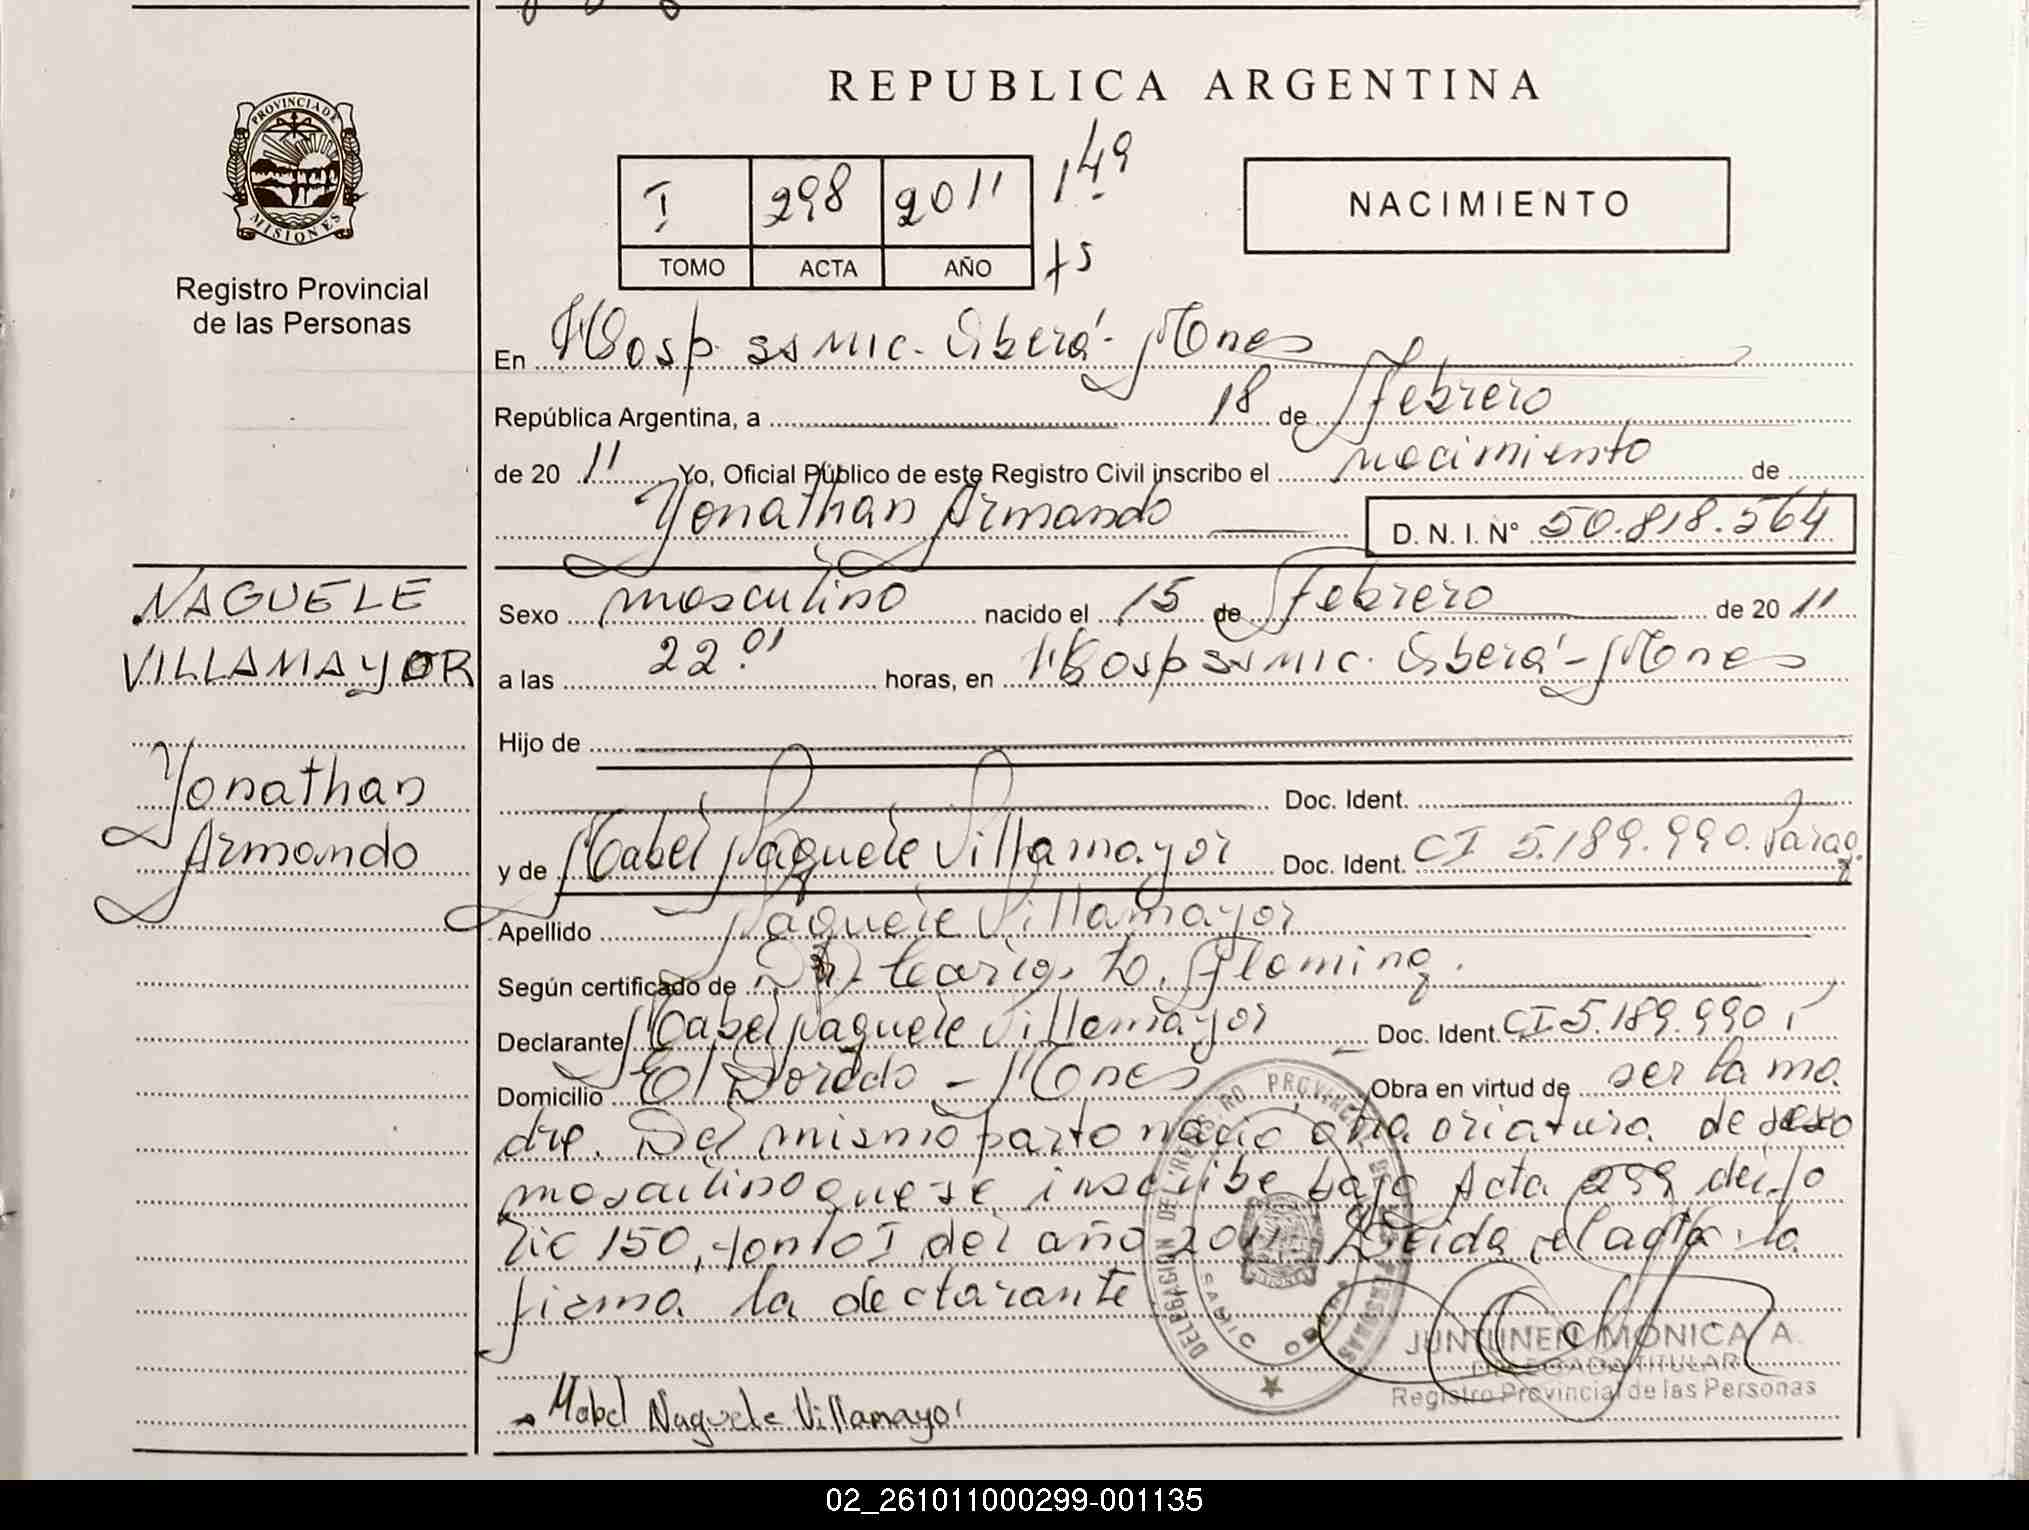 REPUBLICA ARGENTINA
PROVINCIA DE MISIONES
Registro Provincial
de las Personas
I 298 2011 149
TOMO ACTA AÑO
NACIMIENTO
En Hosp. ss mic. Oberá - Mones
República Argentina, a 18 de Febrero
de 20 11 Yo, Oficial Público de este Registro Civil inscribo el nacimiento de
Yonathan Armando D. N. I. Nº 50.818.564
NAGUELE
VILLAMAYOR
Yonathan
Armando
Sexo masculino nacido el 15 de Febrero de 20 11
a las 22.01 horas, en Hosp ss mic. Oberá - Mones
Hijo de
Doc. Ident.
y de Mabel Naguele Villamayor Doc. Ident. CI 5.189.990. Parag.
Apellido Naguele Villamayor
Según certificado de Fleming.
Declarante Mabel Naguele Villamayor Doc. Ident. CI 5.189.990
Domicilio El Dorado - Mones Obra en virtud de ser la ma
dre. Del mismo parto nacio otra criatura de sexo
masculino que se inscribe bajo Acta 299 del fo
lio 150, tomo I del año 2011 Leida el acta la
firma la declarante
DELEGACION DEL REGISTRO PROVINCIAL DE LAS PERSONAS
JUNTUNEN MONICA A.
DELEGADA TITULAR
Registro Provincial de las Personas
Mabel Naguele Villamayor
02_261011000299-001135